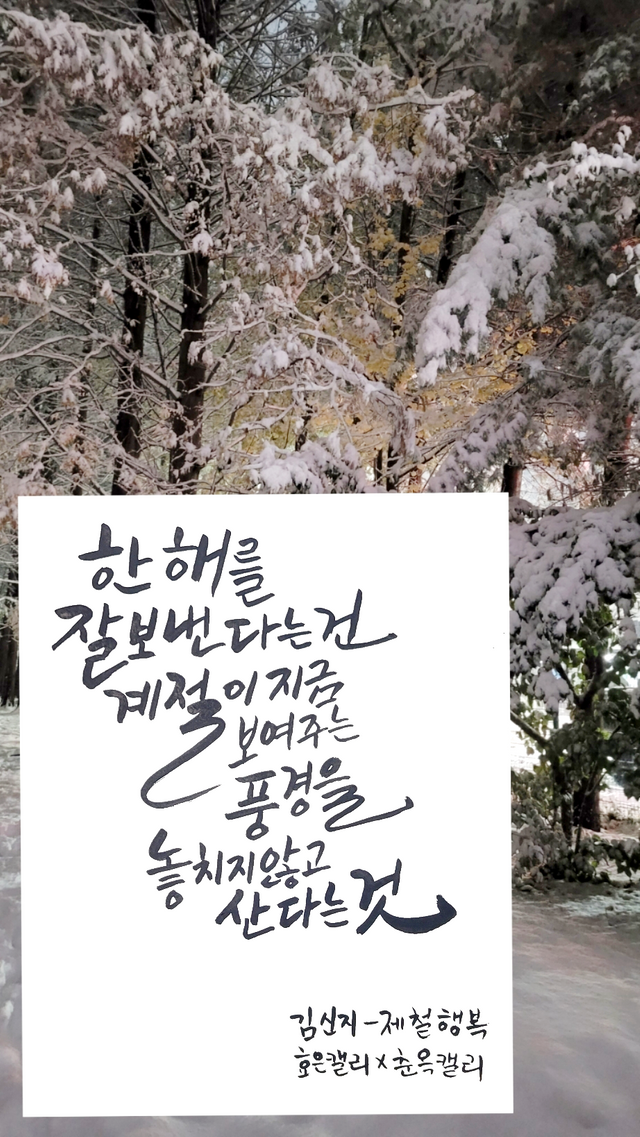 한 해를
잘 보낸다는 건
계절이 지금
보여주는
풍경을
놓치지 않고
산다는 것
김신지 - 제철 행복
호은캘리 x 춘옥캘리